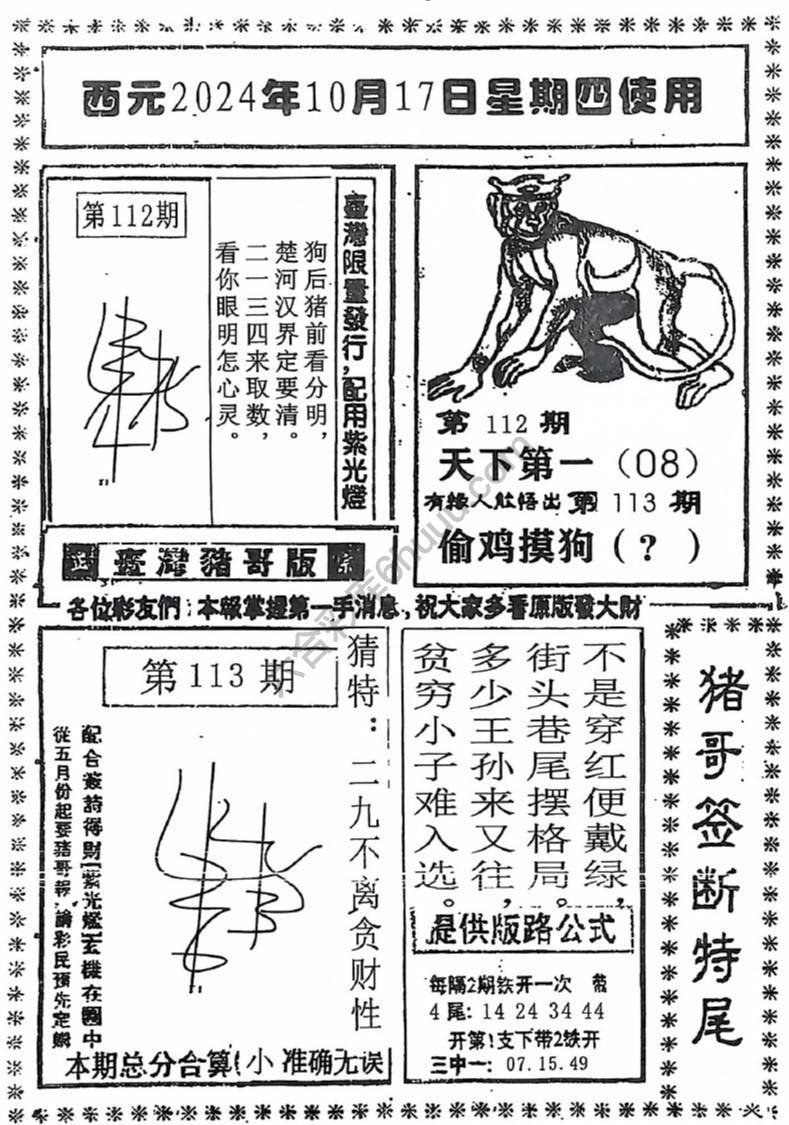 西元2024年10月17日星期四使用
第112期
臺灣限量發行,配用紫光燈
狗后猪前看分明,
楚河汉界定要清。
二一三四来取数,
看你眼明怎心灵。
正 臺灣豬哥版 宗
第 112 期
天下第一 (08)
有緣人能悟出 第 113 期
偷鸡摸狗 (?)
各位彩友們:本報掌握第一手消息,祝大家多看原版發大財
六合彩库6huuu.com
第113期
猜特:二九不离贪财性
配合叢詩得財[紫光燈]玄機在圖中
從五月份起要豬哥報,請彩民預先定購
本期总分合算(小 准确无误
不是穿红便戴绿,
街头巷尾摆格局。
多少王孙来又往,
贫穷小子难入选。
提供版路公式
每隔2期铁开一次 带
4尾:14 24 34 44
开第1支下带2铁开
三中一:07.15.49
猪哥签断特尾